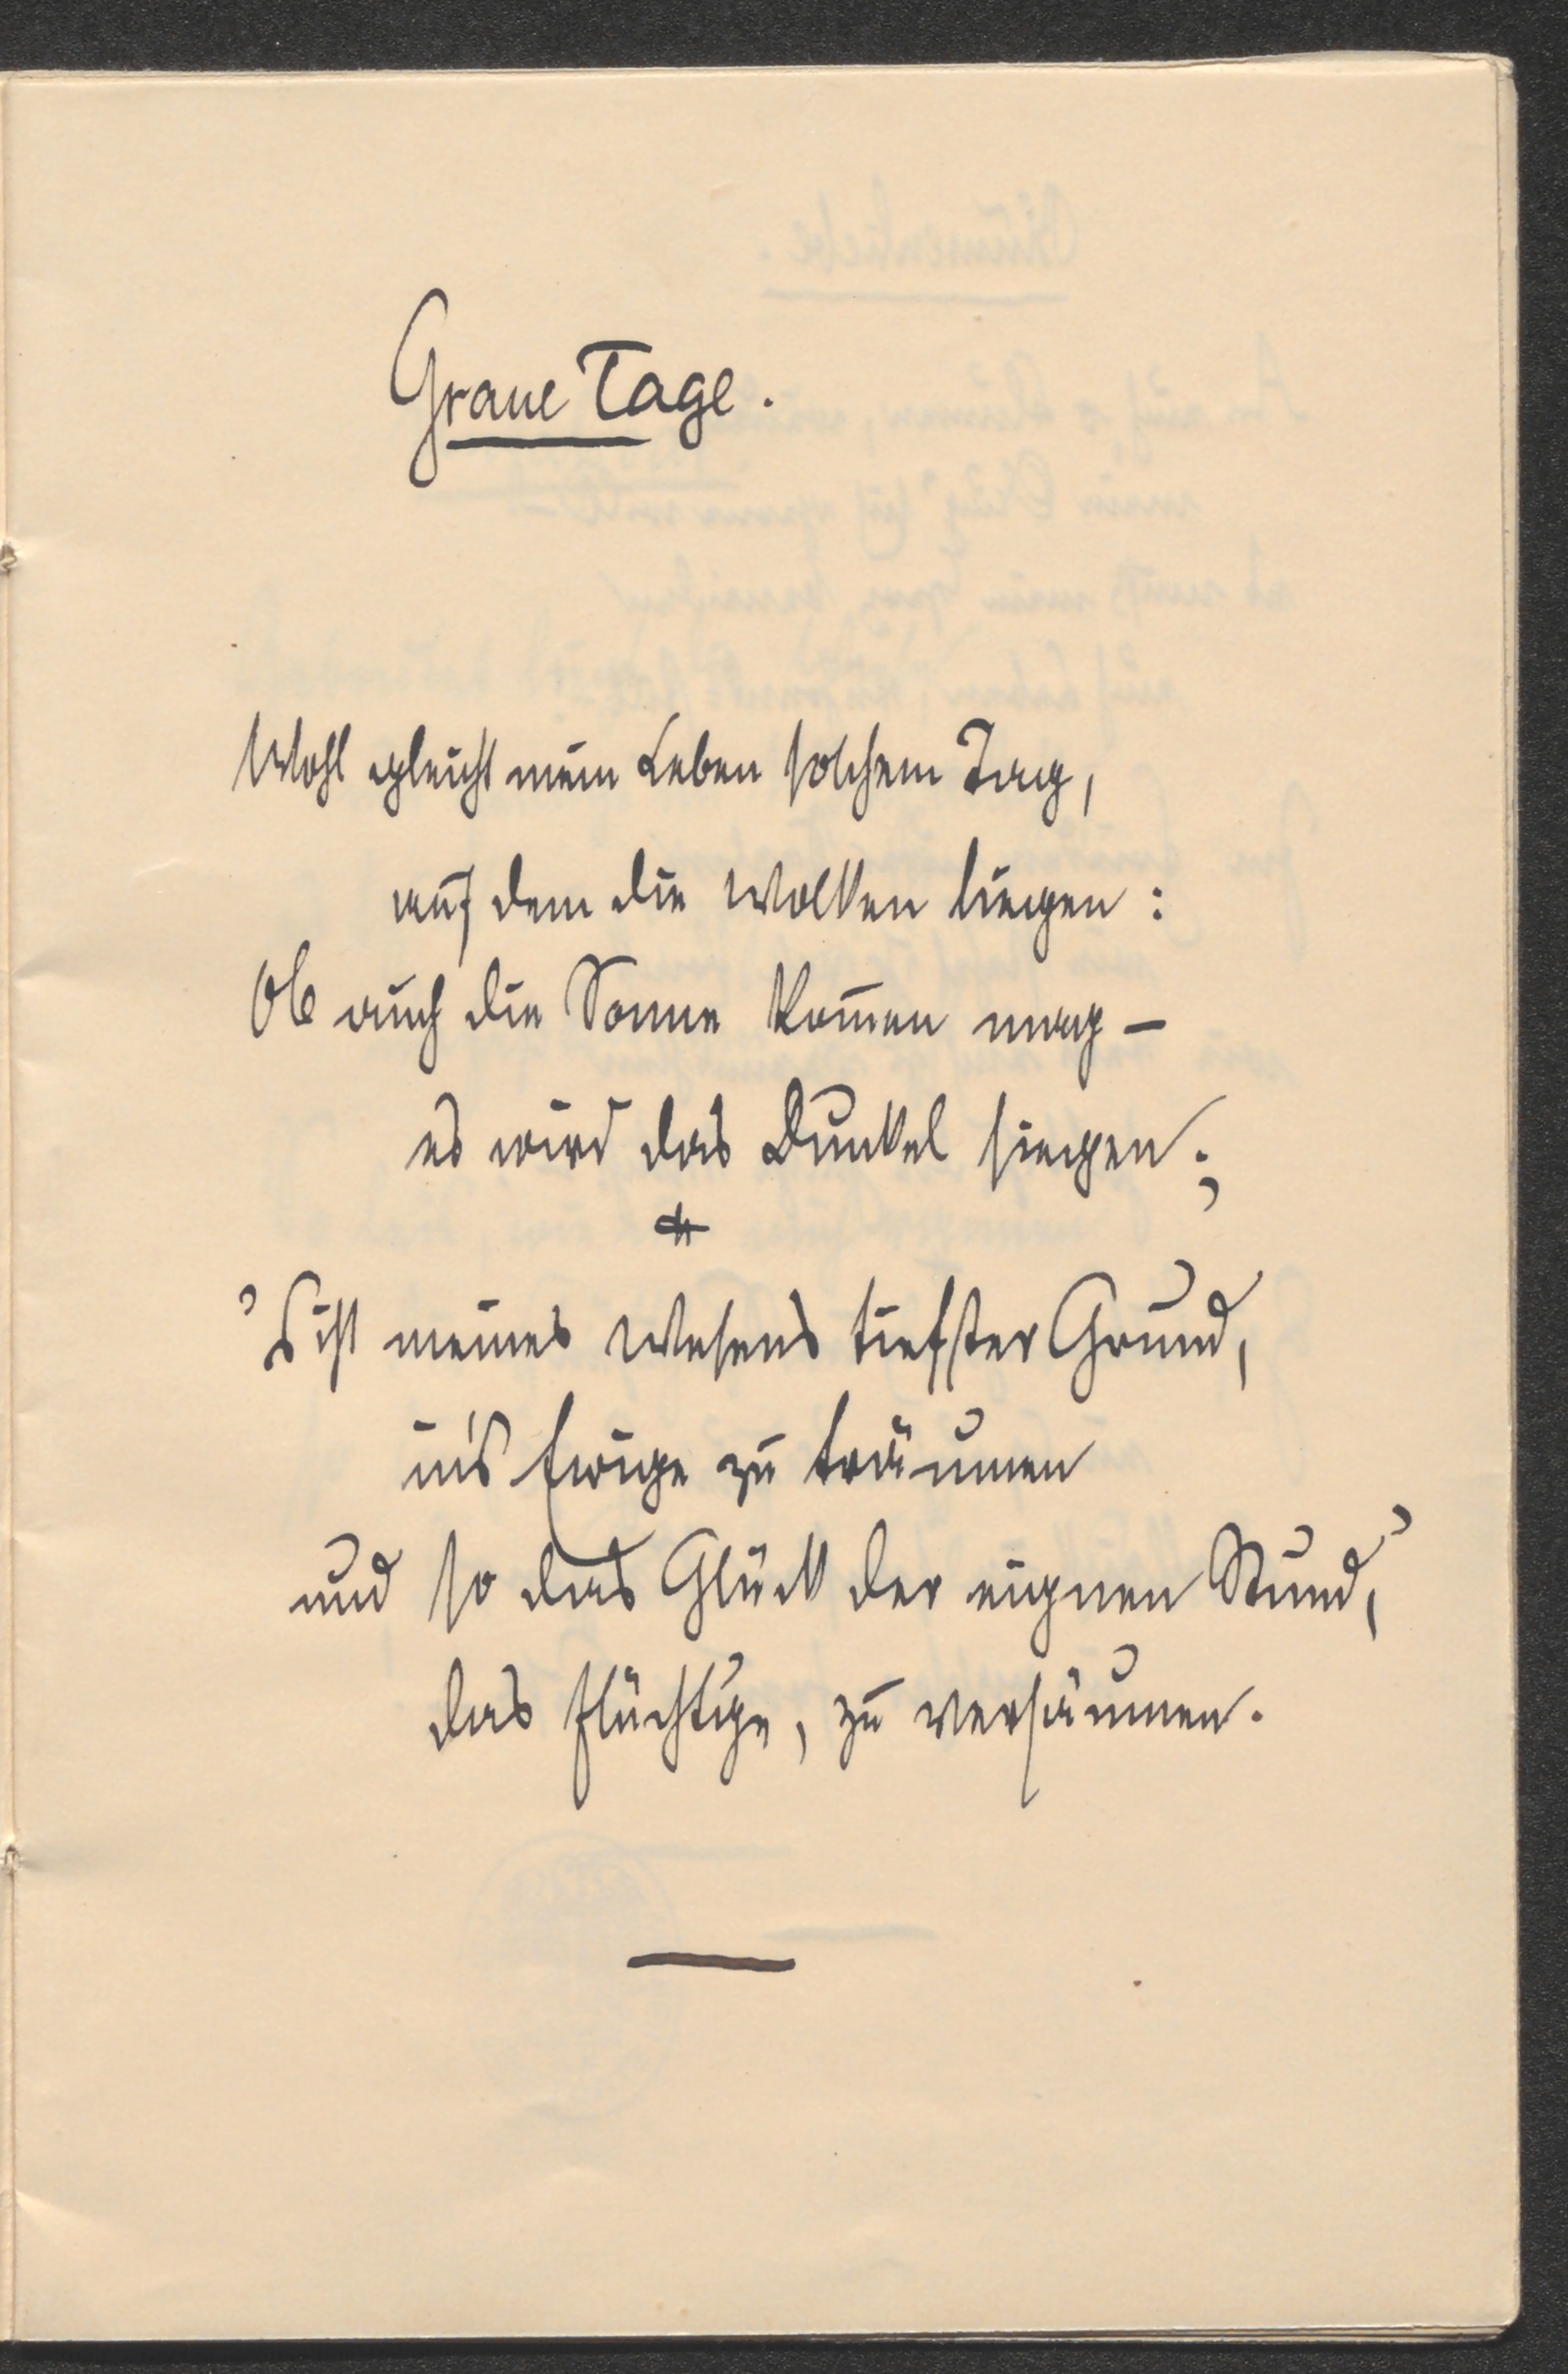 Graue Tage.
Wohl gleicht mein Leben solchem Tag,
auf dem die Wolken liegen:
Ob auch die Sonne kom̅en mag –
es wird das Dunkel siegen;
*
's ist meines Wesens tiefster Grund,
in's Ewige zu träumen
und so das Glück der eignen Stund',
das flüchtige, zu versäumen.